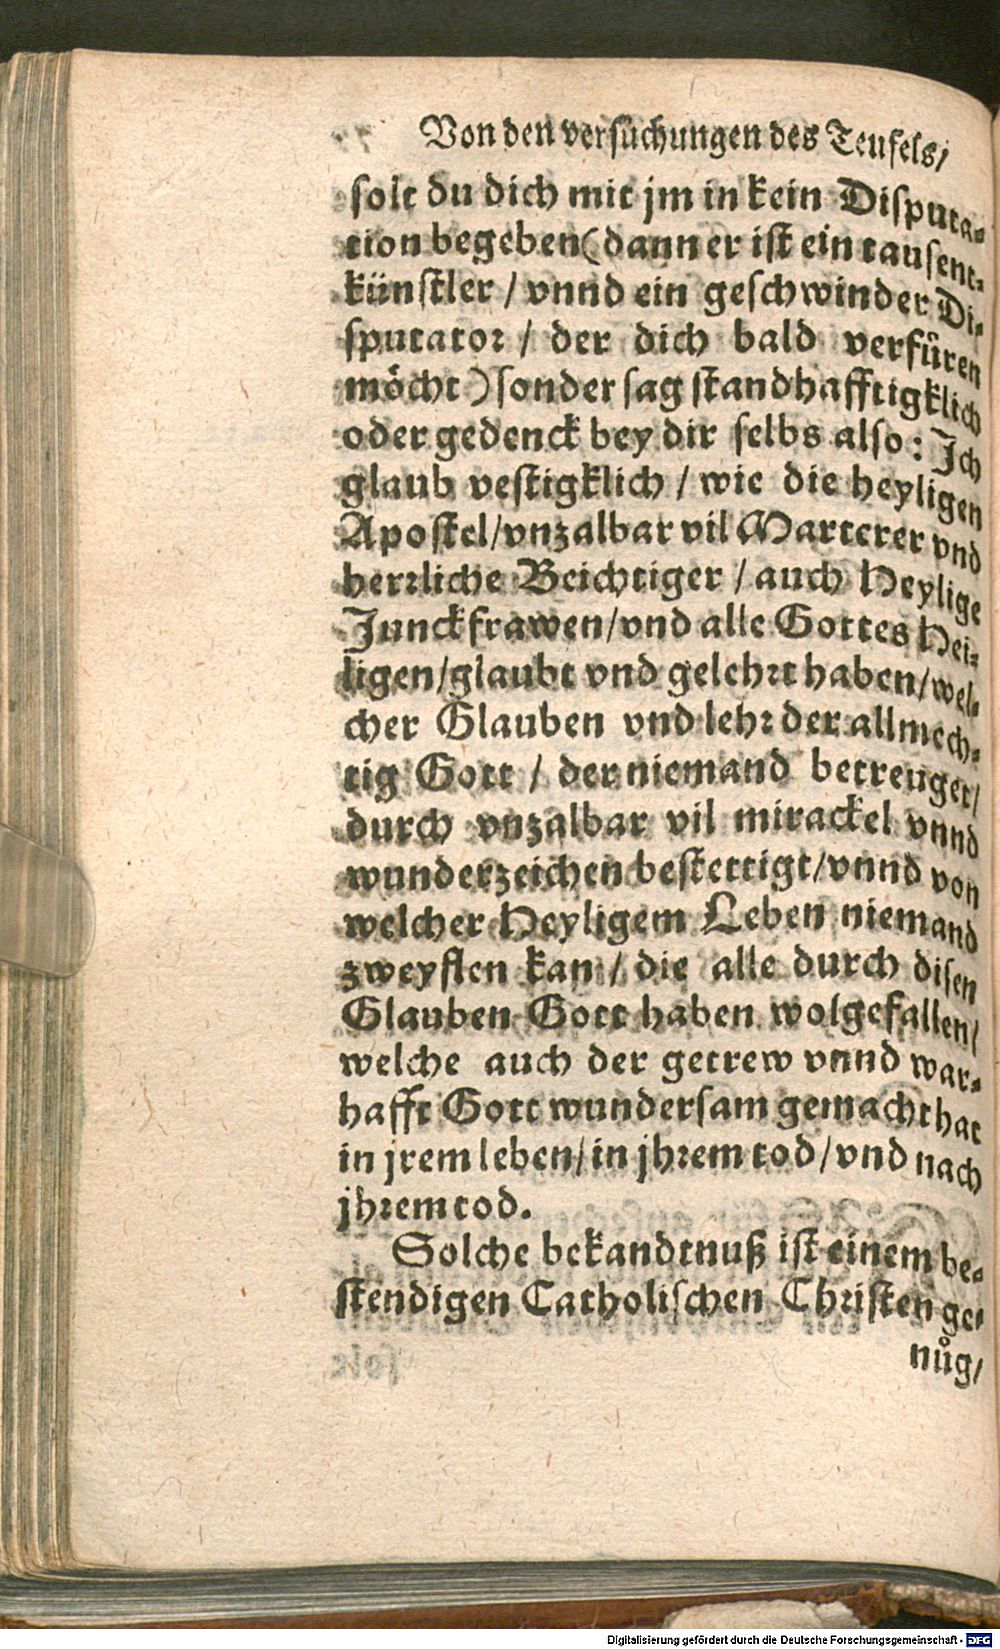 Von den versuchungen des Teufels/
solt du dich mit jm in kein Disputa-
tion begeben (dann er ist ein tausent-
künstler / vnnd ein geschwinder Di-
sputator / der dich bald verfůren
möcht) sonder sag standhafftigklich
oder gedenck bey dir selbs also: Ich
glaub vestigklich / wie die heyligen
Apostel/vnzalbar vil Marterer vnd
herrliche Beichtiger / auch Heylige
Junckfrawen/vnd alle Gottes Hei-
ligen/glaubt vnd gelehrt haben/wel-
cher Glauben vnd lehr der allmech-
tig Gott / der niemand betreuget/
durch vnzalbar vil mirackel vnnd
wunderzeichen bestettigt/vnnd von
welcher Heyligem Leben niemand
zweyflen kan / die alle durch disen
Glauben Gott haben wolgefallen/
welche auch der getrew vnnd war-
hafft Gott wundersam gemacht hat
in jrem leben/in jhrem tod/vnd nach
jhrem tod.
Solche bekandtnuß ist einem be-
stendigen Catholischen Christen ge-
nůg/
Digitalisierung gefördert durch die Deutsche Forschungsgemeinschaft - DFG